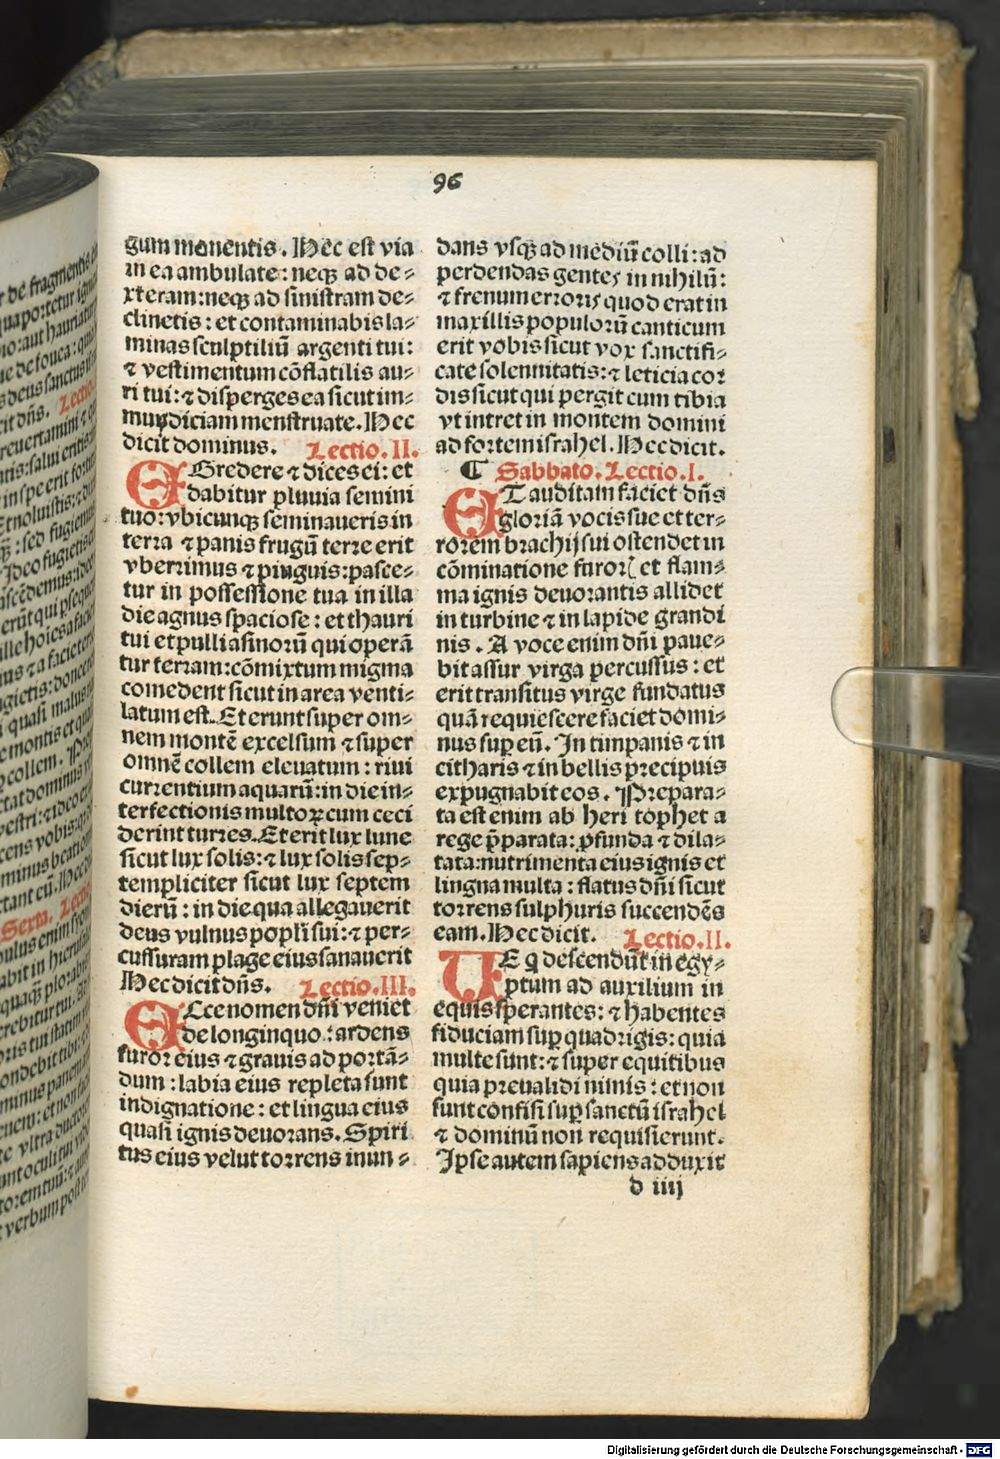 96
gum monentis. Hec est via
in ea ambulate: neqꝫ ad de⸗
xteram: neqꝫ ad sinistram de⸗
clinetis: et contaminabis la⸗
minas sculptiliū argenti tui:
⁊ vestimentum cōflatilis au⸗
ri tui: ⁊ disperges ea sicut im⸗
mundiciam menstruate. Hec
dicit dominus. Lectio. II.
EGredere ⁊ dices ei: et
dabitur pluuia semini
tuo: vbicunqꝫ seminaueris in
terra ⁊ panis frugū terre erit
vberrimus ⁊ pinguis: pasce⸗
tur in possessione tua in illa
die agnus spaciose: et thauri
tui et pulli asinorū qui operā
tur terram: cōmixtum migma
comedent sicut in area venti⸗
latum est. Et erunt super om⸗
nem montē excelsum ⁊ super
omnē collem eleuatum: riui
currentium aquarū: in die in⸗
terfectionis multoꝝ cum ceci
derint turres. Et erit lux lune
sicut lux solis: ⁊ lux solis sep⸗
templiciter sicut lux septem
dierū: in die qua allegauerit
deus vulnus popli sui: ⁊ per⸗
cussuram plage eius sanauerit
Hec dicit dn̄s. Lectio. III.
ECce nomen dn̄i veniet
de longinquo: ardens
furor eius ⁊ grauis ad portā⸗
dum: labia eius repleta sunt
indignatione: et lingua eius
quasi ignis deuorans. Spiri
tus eius velut torrens inun⸗
dans vsqꝫ ad mediū colli: ad
perdendas gentes in nihilū:
⁊ frenum erroris quod erat in
maxillis populorū canticum
erit vobis sicut vox sanctifi⸗
cate solennitatis: ⁊ leticia cor
dis sicut qui pergit cum tibia
vt intret in montem domini
ad fortem israhel. Hec dicit.
¶ Sabbato. Lectio. I.
ET auditam faciet dn̄s
gloriā vocis sue et ter⸗
rorem brachij sui ostendet in
cōminatione furorꝭ et flam⸗
ma ignis deuorantis allidet
in turbine ⁊ in lapide grandi
nis. A voce enim dn̄i paue⸗
bit assur virga percussus: et
erit transitus virge fundatus
quā requiescere faciet domi⸗
nus sup eū. In timpanis ⁊ in
citharis ⁊ in bellis precipuis
expugnabit eos. Prepara⸗
ta est enim ab heri tophet a
rege p̄parata: ꝓfunda ⁊ dila⸗
tata: nutrimenta eius ignis et
lingna multa: flatus dn̄i sicut
torrens sulphuris succendēs
eam. Hec dicit. Lectio. II.
VE q descendūt in egy⸗
ptum ad auxilium in
equis sperantes: ⁊ habentes
fiduciam sup quadrigis: quia
multe sunt: ⁊ super equitibus
quia preualidi nimis: et non
sunt confisi sup sanctū israhel
⁊ dominū non requisierunt.
Ipse autem sapiens adduxit
d iiij
Digitalisierung gefördert durch die Deutsche Forschungsgemeinschaft - DFG